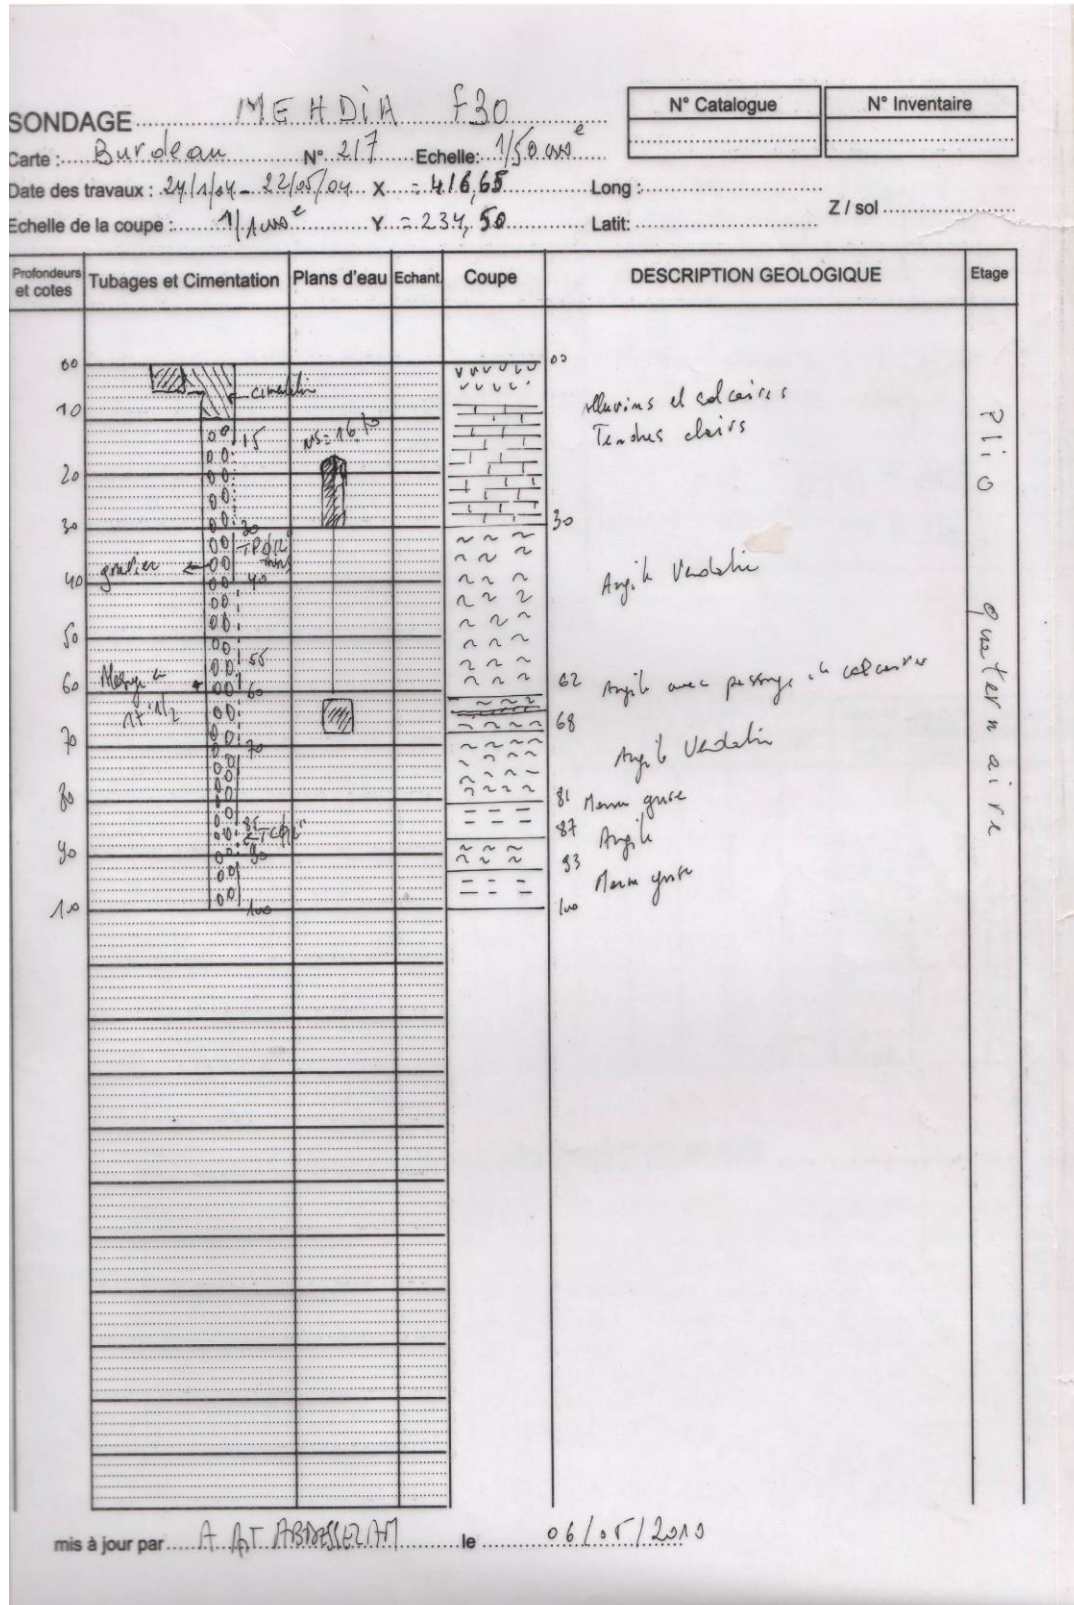 SONDAGE MEHDIA F30
N° Catalogue
N° Inventaire
Carte : Burdeau N° 217 Echelle: 1/50 000e
Date des travaux : 24/1/04 - 22/05/04 X = 416,65 Long :
Z / sol
Echelle de la coupe : 1/1000e Y = 234,50 Latit:
Profondeurs et cotes
Tubages et Cimentation
Plans d'eau
Echant.
Coupe
DESCRIPTION GEOLOGIQUE
Etage
00
00
10
15
NS=16,70
Alluvions et calcaires
Tendres clairs
20
30
30
30
gravier
40
40
Argile Verdatre
50
55
60
60
62 Argile avec passage de calcaire
17"1/2
68
70
70
Argile Verdatre
80
81 Marne grise
85
87 Argile
90
90
93 Marne grise
100
100
100
Plio quaternaire
mis à jour par A AIT ABDESSELAM le 06/05/2010